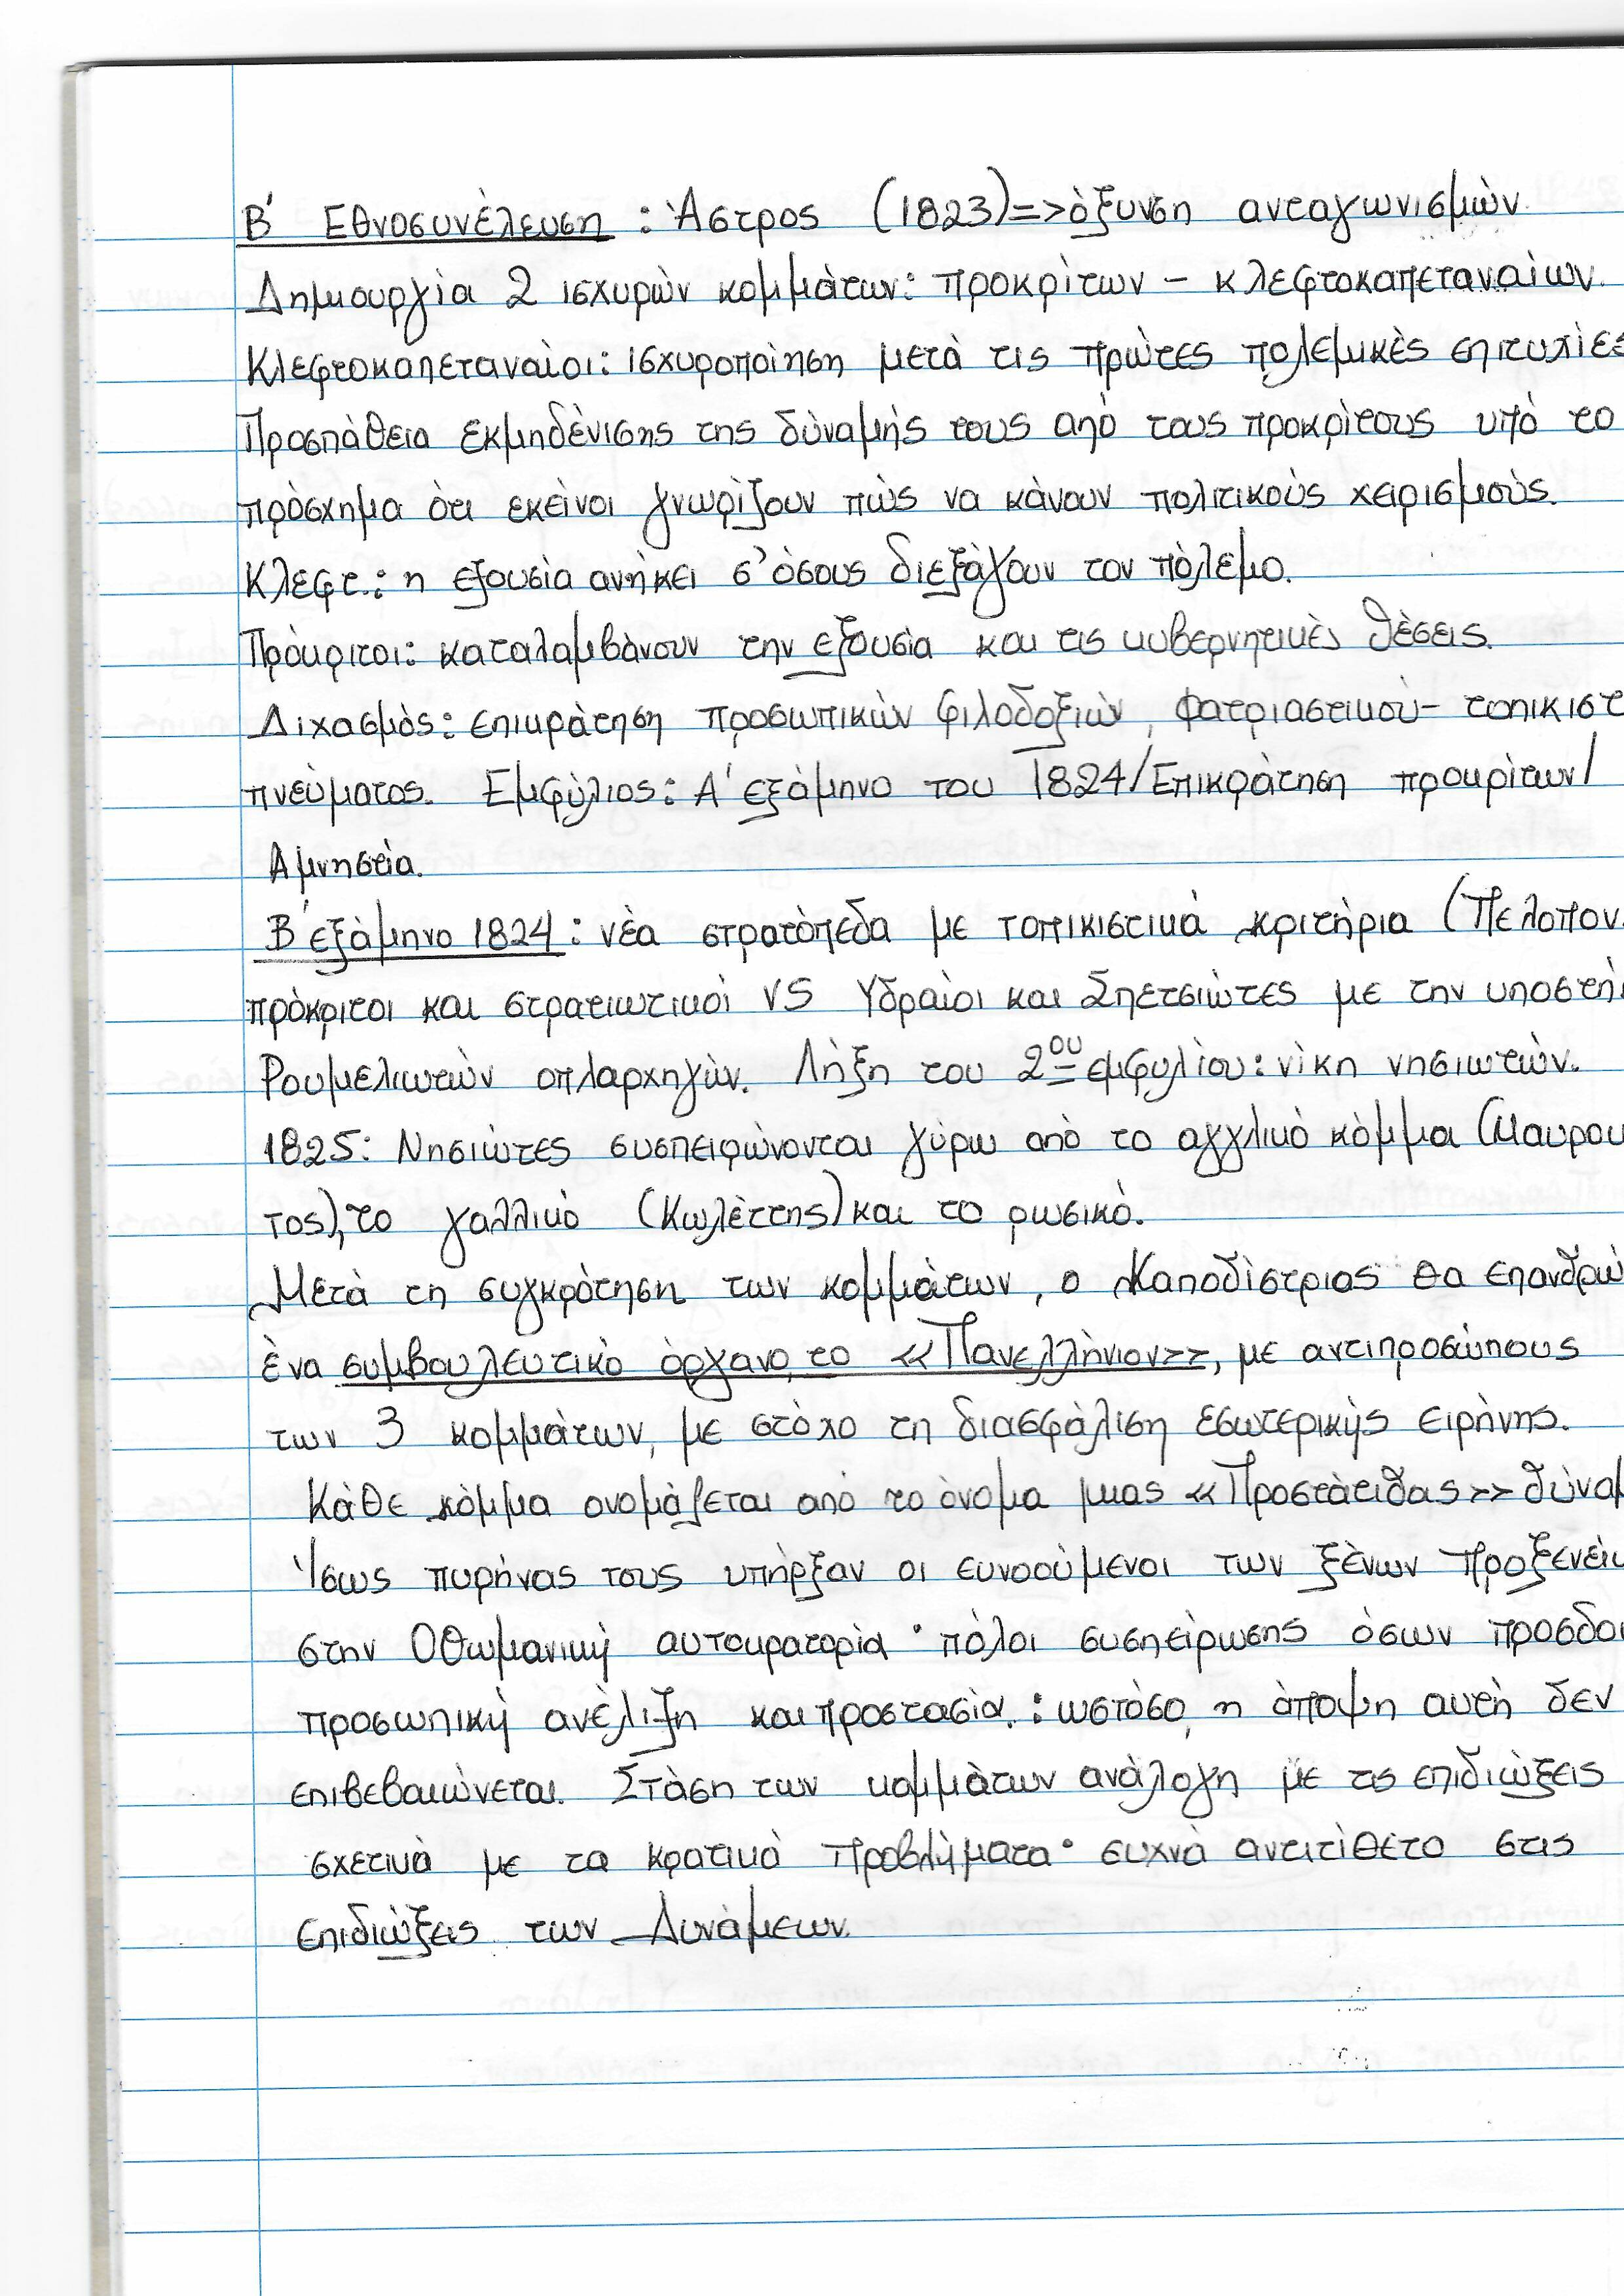 Β' Εθνοσυνέλευση : Άστρος (1823)=>όξυνση ανταγωνισμών.
Δημιουργία 2 ισχυρών κομμάτων: προκρίτων – κλεφτοκαπεταναίων.
Κλεφτοκαπεταναίοι: ισχυροποίηση μετά τις πρώτες πολεμικές επιτυχίες
Προσπάθεια εκμηδένισης της δύναμής τους από τους προκρίτους υπό το
πρόσχημα ότι εκείνοι γνωρίζουν πώς να κάνουν πολιτικούς χειρισμούς.
Κλεφτ.: η εξουσία ανήκει σ' όσους διεξάγουν τον πόλεμο.
Πρόκριτοι: καταλαμβάνουν την εξουσία και τις κυβερνητικές θέσεις.
Διχασμός: επικράτηση προσωπικών φιλοδοξιών, φατριαστικού– τοπικιστ
πνεύματος. Εμφύλιος: Α' εξάμηνο του 1824/Επικράτηση προκρίτων/
Αμνηστία.
Β' εξάμηνο 1824 : νέα στρατόπεδα με τοπικιστικά κριτήρια (Πελοπον.
πρόκριτοι και στρατιωτικοί VS Υδραίοι και Σπετσιώτες με την υποστή
Ρουμελιωτών οπλαρχηγών. Λήξη του 2ου εμφυλίου: νίκη νησιωτών.
1825: Νησιώτες συσπειρώνονται γύρω από το αγγλικό κόμμα (Μαυρου
τος), το γαλλικό (Κωλέττης) και το ρωσικό.
Μετά τη συγκρότηση των κομμάτων, ο Καποδίστριας θα επανδρώ
ένα συμβουλευτικό όργανο, το «Πανελλήνιον», με αντιπροσώπους
των 3 κομμάτων, με στόχο τη διασφάλιση εσωτερικής ειρήνης.
Κάθε κόμμα ονομάζεται από το όνομα μιας «Προστάτιδας» δύναμ
Ίσως πυρήνας τους υπήρξαν οι ευνοούμενοι των ξένων προξενείω
στην Οθωμανική αυτοκρατορία · πόλοι συσπείρωσης όσων προσδοκ
προσωπική ανέλιξη και προστασία. : ωστόσο, η άποψη αυτή δεν
επιβεβαιώνεται. Στάση των κομμάτων ανάλογη με τις επιδιώξεις
σχετικά με τα κρατικά προβλήματα · συχνά αντιτίθετο στις
επιδιώξεις των Δυνάμεων.